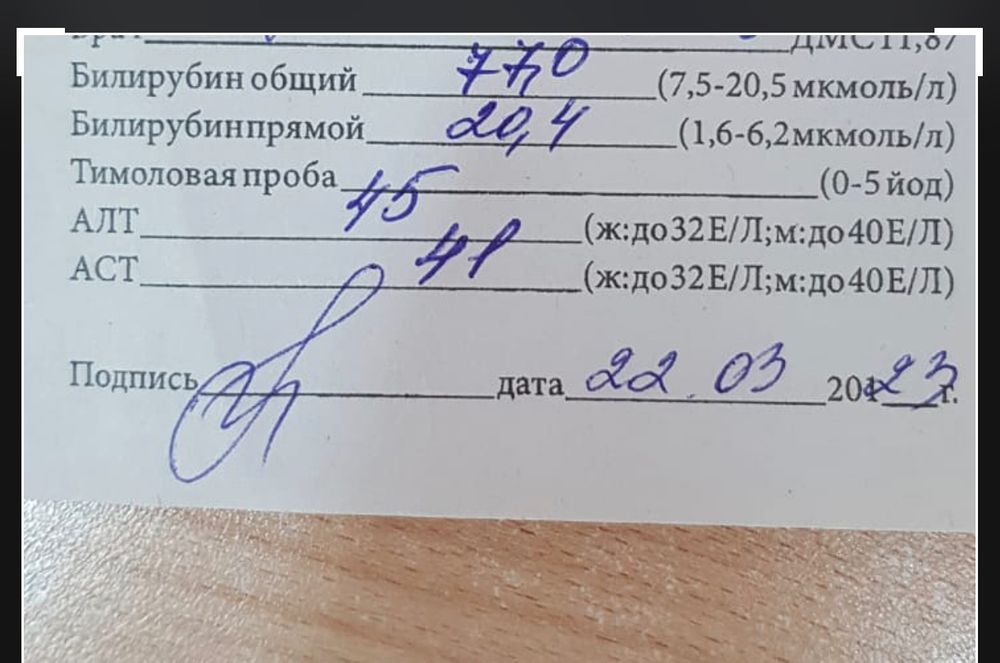 Врач ДМСП,87
Билирубин общий 77,0 (7,5-20,5 мкмоль/л)
Билирубин прямой 20,4 (1,6-6,2мкмоль/л)
Тимоловая проба (0-5 йод)
АЛТ 45 (ж:до 32 Е/Л; м:до 40 Е/Л)
АСТ 41 (ж:до 32 Е/Л; м:до 40 Е/Л)
Подпись дата 22.03 2023 г.